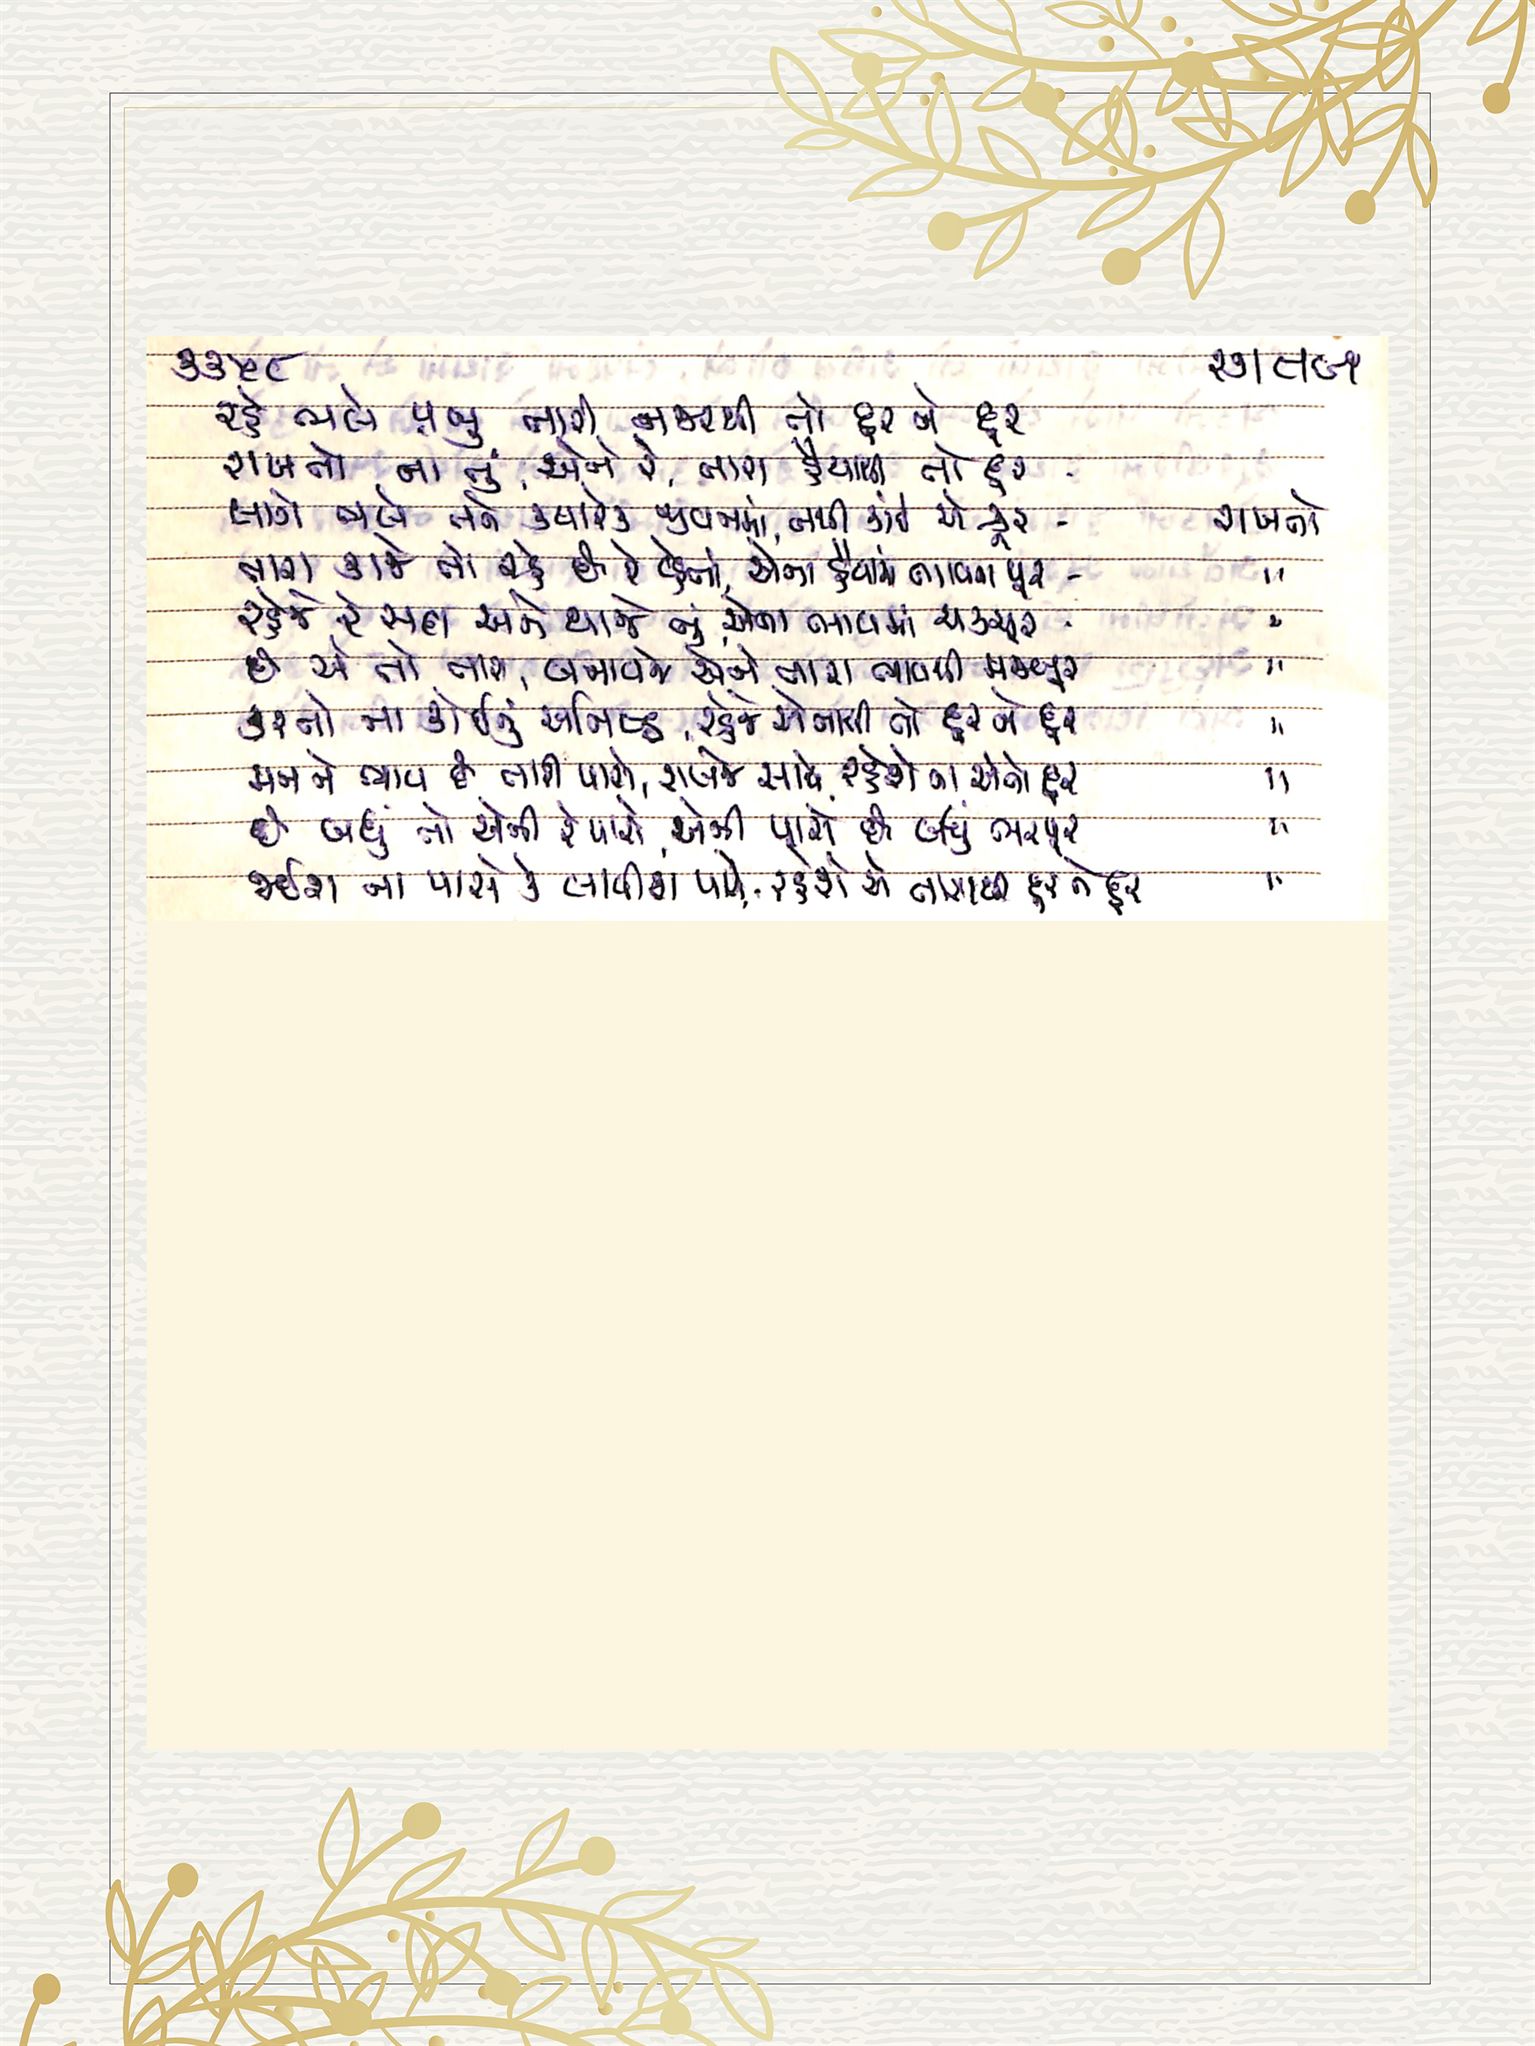 ૩૩૫૮
રહે ભલે પ્રભુ તારી નજરથી તો દૂર ને દૂર
રાખતો ના તું, એને રે, તારા હૈયાથી તો દૂર -
લાગે ભલે તને ક્યારેક જીવનમાં, નથી કાંઈ એ ક્રૂર - રાખતો
તારા કાજે તો રહે છે રે વ્હેતાં, એના હૈયામાં ભાવના પૂર - "
રહેજે રે સદા અને થાજે તું, એના ભાવમાં ચકચૂર - "
છે એ તો તારા, બનાવજે એને તારા ભાવથી મજબૂર "
કરતો ના કોઈનું અનિષ્ટ, રહેજે એનાથી તો દૂર ને દૂર "
મન ને ભાવ છે તારી પાસે, રાખજે સાથે, રહેશે ના એનો દૂર "
છે બધું તો એની રે પાસે, એની પાસે છે બધું ભરપૂર "
જઈશ ના પાસે કે લાવીશ પાસે, રહેશે એ તારાથી દૂર ને દૂર "